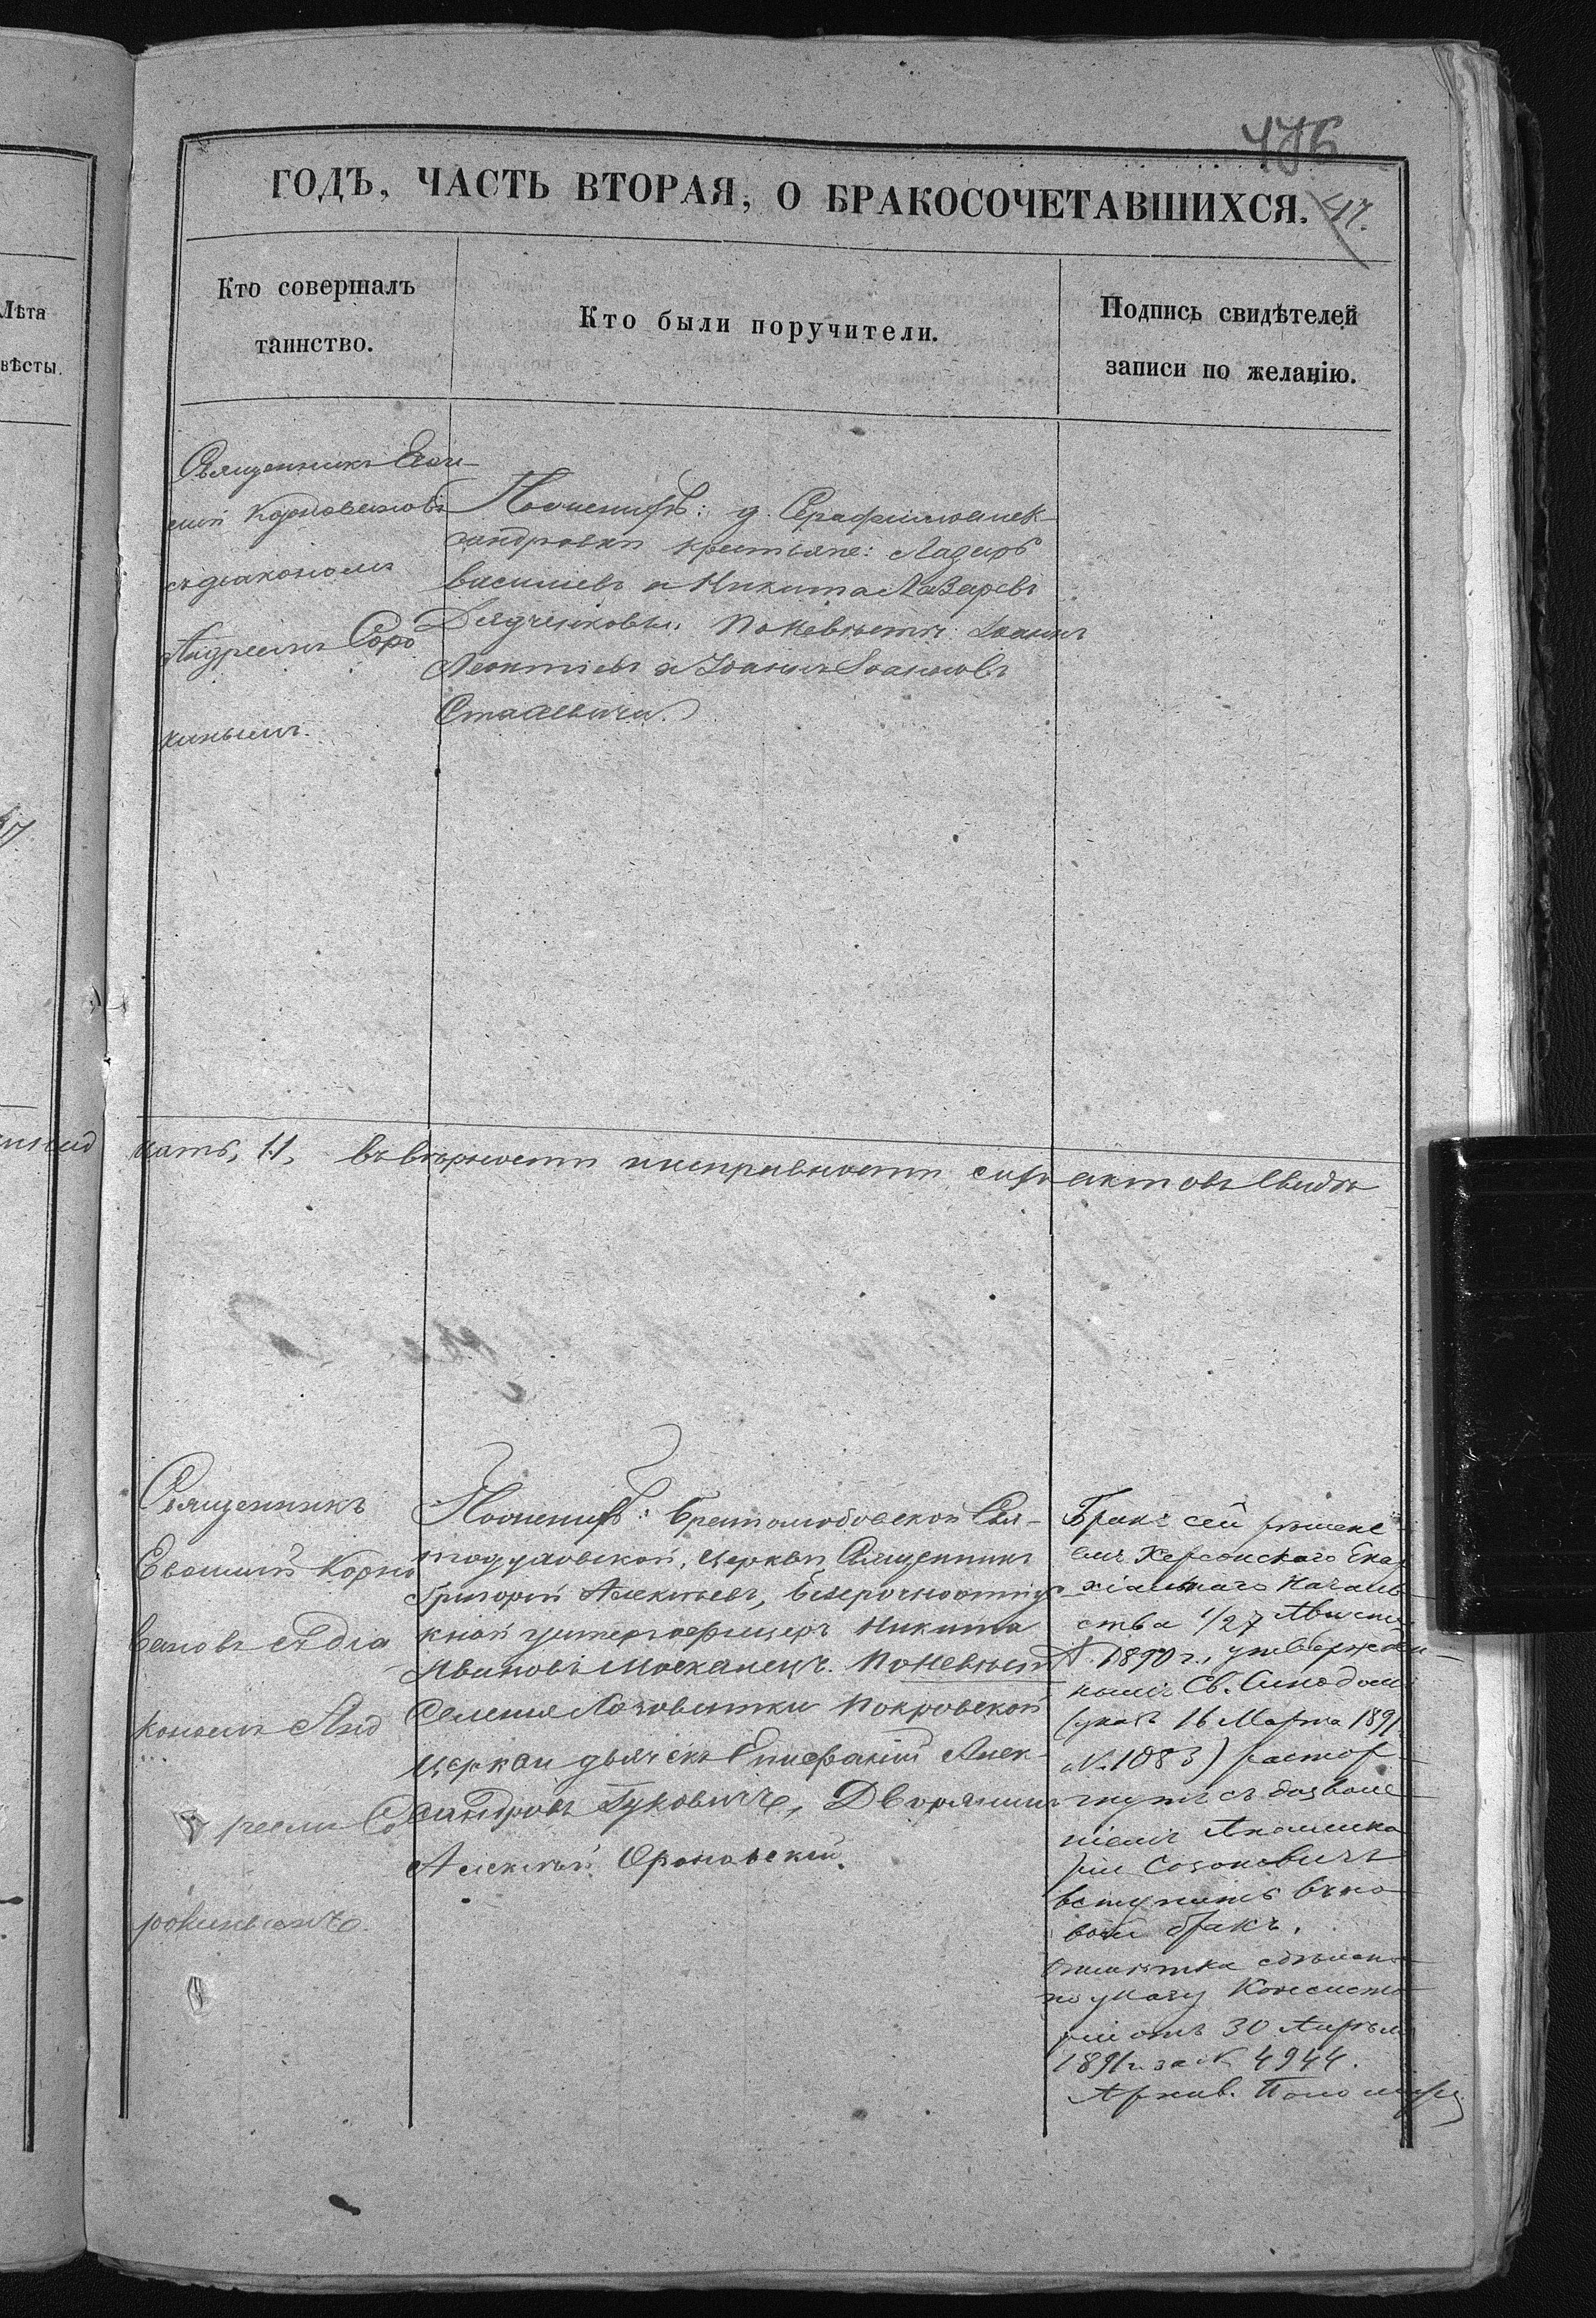 476
ГОДЪ, ЧАСТЬ ВТОРАЯ, О БРАКОСОЧЕТАВШИХСЯ. 47.
Лѣта
вѣсты.
Кто совершалъ
таинство.
Кто были поручители.
Подпись свидѣтелей
записи по желанію.
Священникъ
съ діакономъ
Андреемъ Соро
кинымъ.
По женихѣ: д. Серафимоалек-
сандровки крестьяне: Лазарь
Василіевъ и Никита Лазаревъ
Дядченковы. По невѣстѣ: Іоаннъ
Леонтіевъ и Іоаннъ Іоанновъ
Стасевичи.
11, въ вѣрности исправности сихъ актовъ свидѣ
Священникъ
Евѳимій Корно
вановъ съ діа
кономъ Анд
реемъ Со
рокинымъ.
По женихѣ: Братолюбовской Свя-
тодуховской, церкви Священникъ
Григорій Алексѣевъ, безсрочноотпус
кной унтерофицеръ Никита
Ивановъ Москалецъ. По невѣстѣ
Селенія Лозоватки Покровской
церкви дьячекъ Епифаній Алек-
сандровъ Гуковичъ, Дворянинъ
Алексѣй
Бракъ сей рѣшені-
емъ Херсонскаго Епар
хіальнаго Началь
ства 1/27 Августа
1890 г., утвержден-
нымъ Св. Синодомъ
(указъ 16 Марта 1891
№ 1083) растор-
гнутъ съ дозволе
ніемъ
Созоновичъ
вступить въ но-
вый бракъ.
Отмѣтка сдѣлана
по указу Консисто
ріи отъ 30 Апрѣля
1891 г. за № 4944.
Архив.